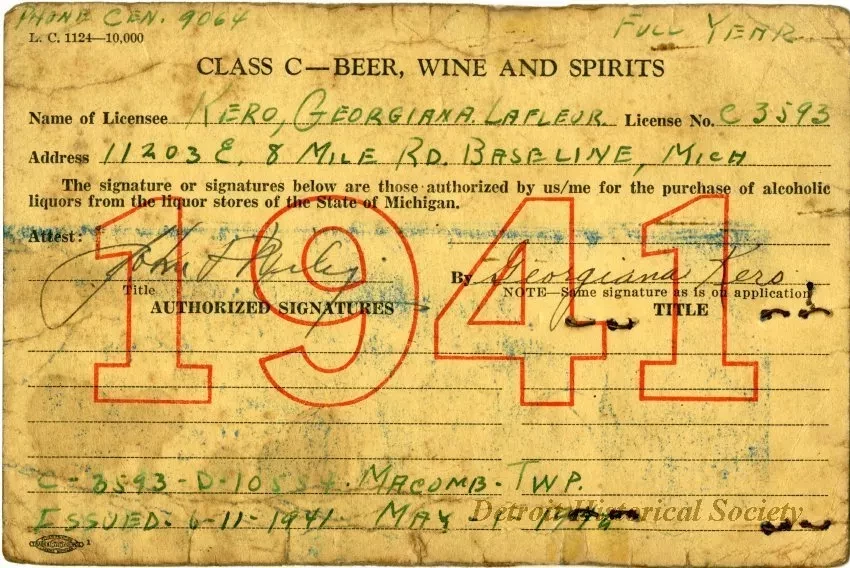 PHONE CEN. 9064
FULL YEAR
L. C. 1124—10,000
CLASS C—BEER, WINE AND SPIRITS
Name of Licensee KERO, GEORGIANA. LAFLEUR. License No. C 3593
Address 11203 E. 8 MILE RD. BASELINE, MICH
The signature or signatures below are those authorized by us/me for the purchase of alcoholic
liquors from the liquor stores of the State of Michigan.
1941
Attest:
John
By Georgiana Kero
Title
NOTE—Same signature as is on application
AUTHORIZED SIGNATURES TITLE
C-3593-D-10554. MACOMB. TWP.
ISSUED. 6-11-1941. MAY
Detroit Historical Society